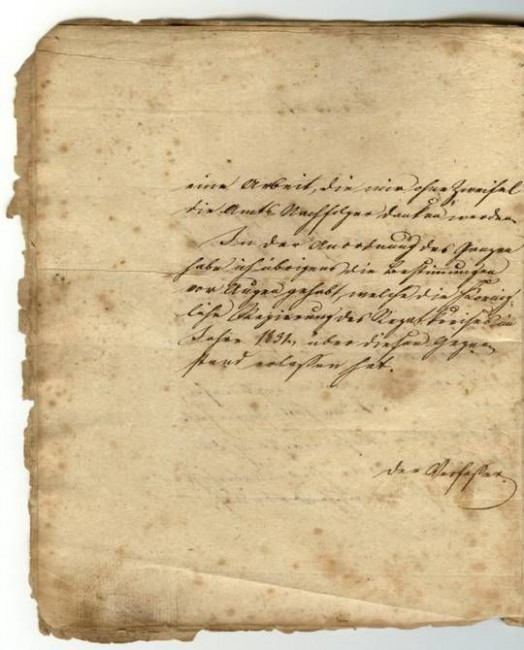 eine Arbeit, die mir ohne Zweifel
die Amts Nachfolger danken werden.
In der Anordnung des Ganzen
habe ich übrigens die Bestimmungen
vor Augen gehabt, welche die Königl
liche Regierung des Rezatkreises im
Jahre 1831, über diesen Gegen
stand erlassen hat.
Der Verfasser.